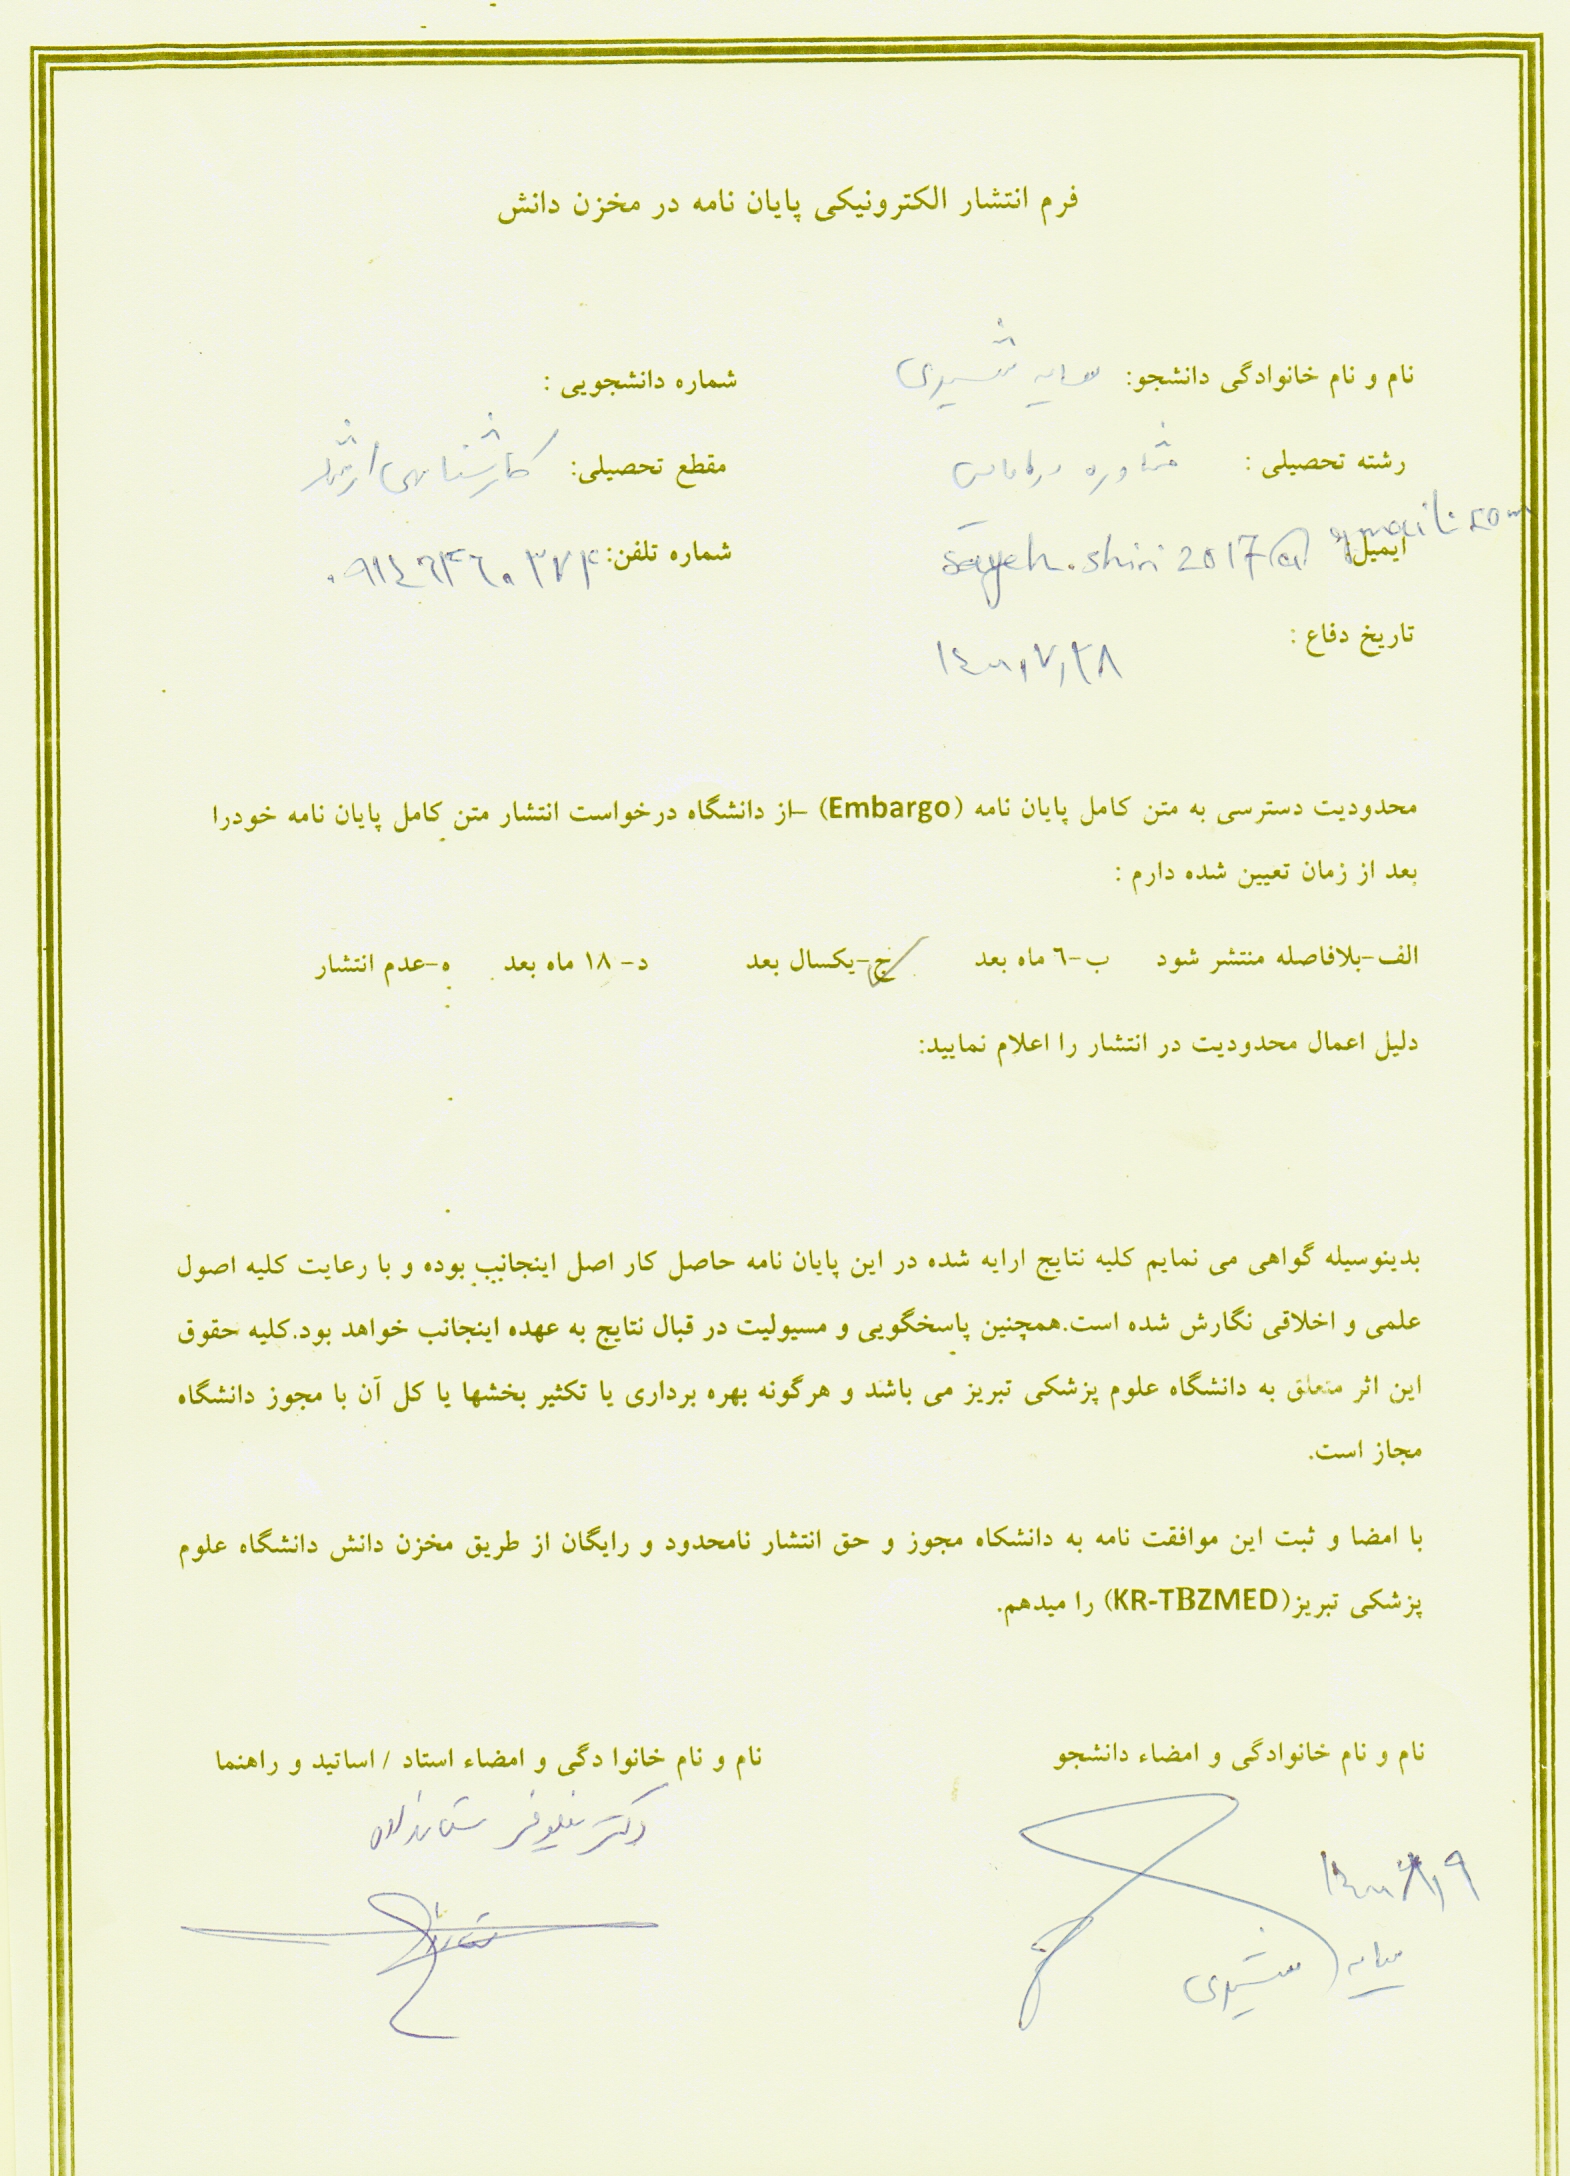 فرم انتشار الکترونیکی پایان نامه در مخزن دانش
نام و نام خانوادگی دانشجو: سایه شیری
شماره دانشجویی :
رشته تحصیلی : مشاوره در مامایی
مقطع تحصیلی: کارشناسی ارشد
ایمیل: sayeh.shiri2017@gmail.com
شماره تلفن:
تاریخ دفاع : ۱۴۰۰,۷,۲۸
محدودیت دسترسی به متن کامل پایان نامه (Embargo) –از دانشگاه درخواست انتشار متن کامل پایان نامه خودرا
بعد از زمان تعیین شده دارم :
الف-بلافاصله منتشر شود ب-٦ ماه بعد ج-یکسال بعد د- ۱۸ ماه بعد ه-عدم انتشار
دلیل اعمال محدودیت در انتشار را اعلام نمایید:
بدینوسیله گواهی می نمایم کلیه نتایج ارایه شده در این پایان نامه حاصل کار اصل اینجانب بوده و با رعایت کلیه اصول
علمی و اخلاقی نگارش شده است.همچنین پاسخگویی و مسیولیت در قبال نتایج به عهده اینجانب خواهد بود.کلیه حقوق
این اثر متعلق به دانشگاه علوم پزشکی تبریز می باشد و هرگونه بهره برداری یا تکثیر بخشها یا کل آن با مجوز دانشگاه
مجاز است.
با امضا و ثبت این موافقت نامه به دانشکاه مجوز و حق انتشار نامحدود و رایگان از طریق مخزن دانش دانشگاه علوم
پزشکی تبریز(KR-TBZMED) را میدهم.
نام و نام خانوادگی و امضاء دانشجو
نام و نام خانوا دگی و امضاء استاد / اساتید و راهنما
دکتر نیلوفر ستارزاده
سایه شیری